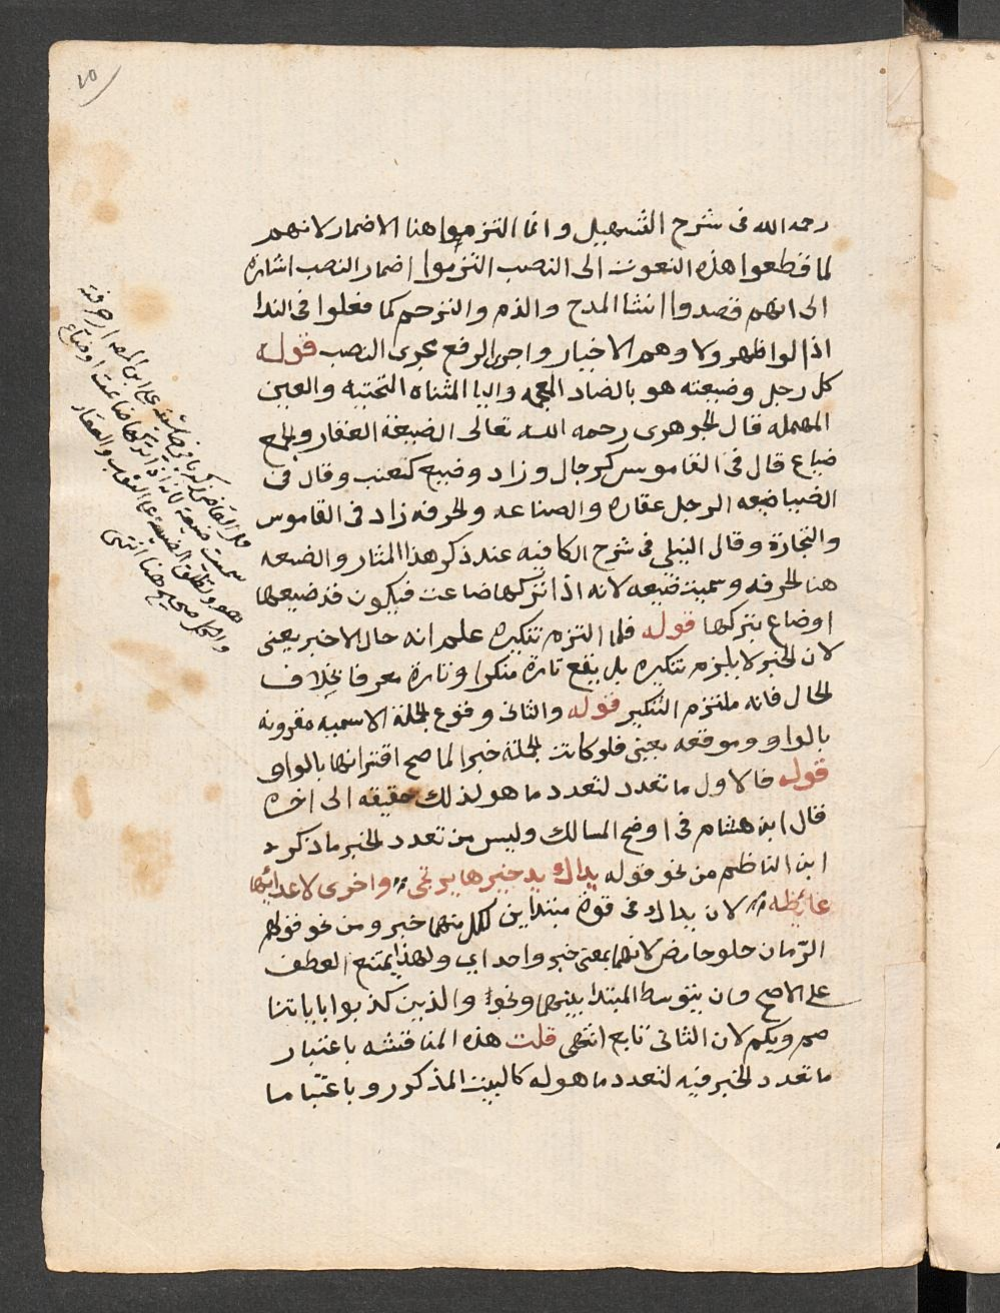 ٧٥
رحمه الله فى شرح التسهيل وانما التزموا هنا الاضمار لانهم
لما قطعوا هذه النعوت الى النصب التزموا اضمار الناصب اشارة
الى انهم قصدوا انشا المدح والذم والترحم كما فعلوا فى الندا
اذ لو اظهر ولاوهم الاخبار واجرى الرفع مجرى النصب قوله
كل رجل وضيعته هو بالضاد المعجمه واليا المثناه التحتيه والعين
المهمله قال الجوهرى رحمه الله تعالى الضيعة العقار والجمع
ضياع قال فى القاموس كرجال وزاد وضيع كعنب وقال فى
الضيا ضيعه الرجل عقاره والصناعه والحرفه زاد فى القاموس
والتجارة وقال النيلى فى شرح الكافيه عند ذكر هذا المثار والضيعه
هنا الحرفه وسميت ضيعه لانه اذا تركها ضاعت فيكون قد ضيعها
اوضاع بتركها قوله فلما التزم تنكيره علم انه حال لا خبر يعنى
لان الخبر لا يلزم تنكيره بل يقع تارة منكرا وتارة معرفا بخلاف
الحال فانه ملتزم التنكير قوله والثانى وقوع الجملة الاسميه مقرونه
بالواو وموقعه يعنى فلو كانت الجملة خبرا لما صح اقترانها بالواو
قوله فالاول ما تعدد لتعدد ما هو لذلك حقيقه الى اخره
قال ابن هشام فى اوضح المسالك وليس من تعدد الخبر ما ذكره
ابن الناظم من نحو قوله يداك يد خيرها يرتجى واخرى لاعدائها
غائظه لان يداك فى قوة مبتداين لكل منهما خبر ومن نحو قولهم
الرمان حلو حامض لانهما بمعنى خبر واحد اى ولهذا يمتنع العطف
على الاصح وان يتوسط المبتدا بينهما ونحو والذين كذبوا باياتنا
صم وبكم لان الثانى تابع انتهى قلت هذه المناقشه باعتبار
ما تعدد الخبر فيه لتعدد ما هو له كالبيت المذكور وباعتبار ما
قال القاضى زكريا فى حاشيته على ابن المصنف اى حرفته
سميت ضيعة لانه اذا تركها ضاعت اوضاع
هو وتطلق الضيعة على الثوب والعقار
والكل صحيح هنا انتهى